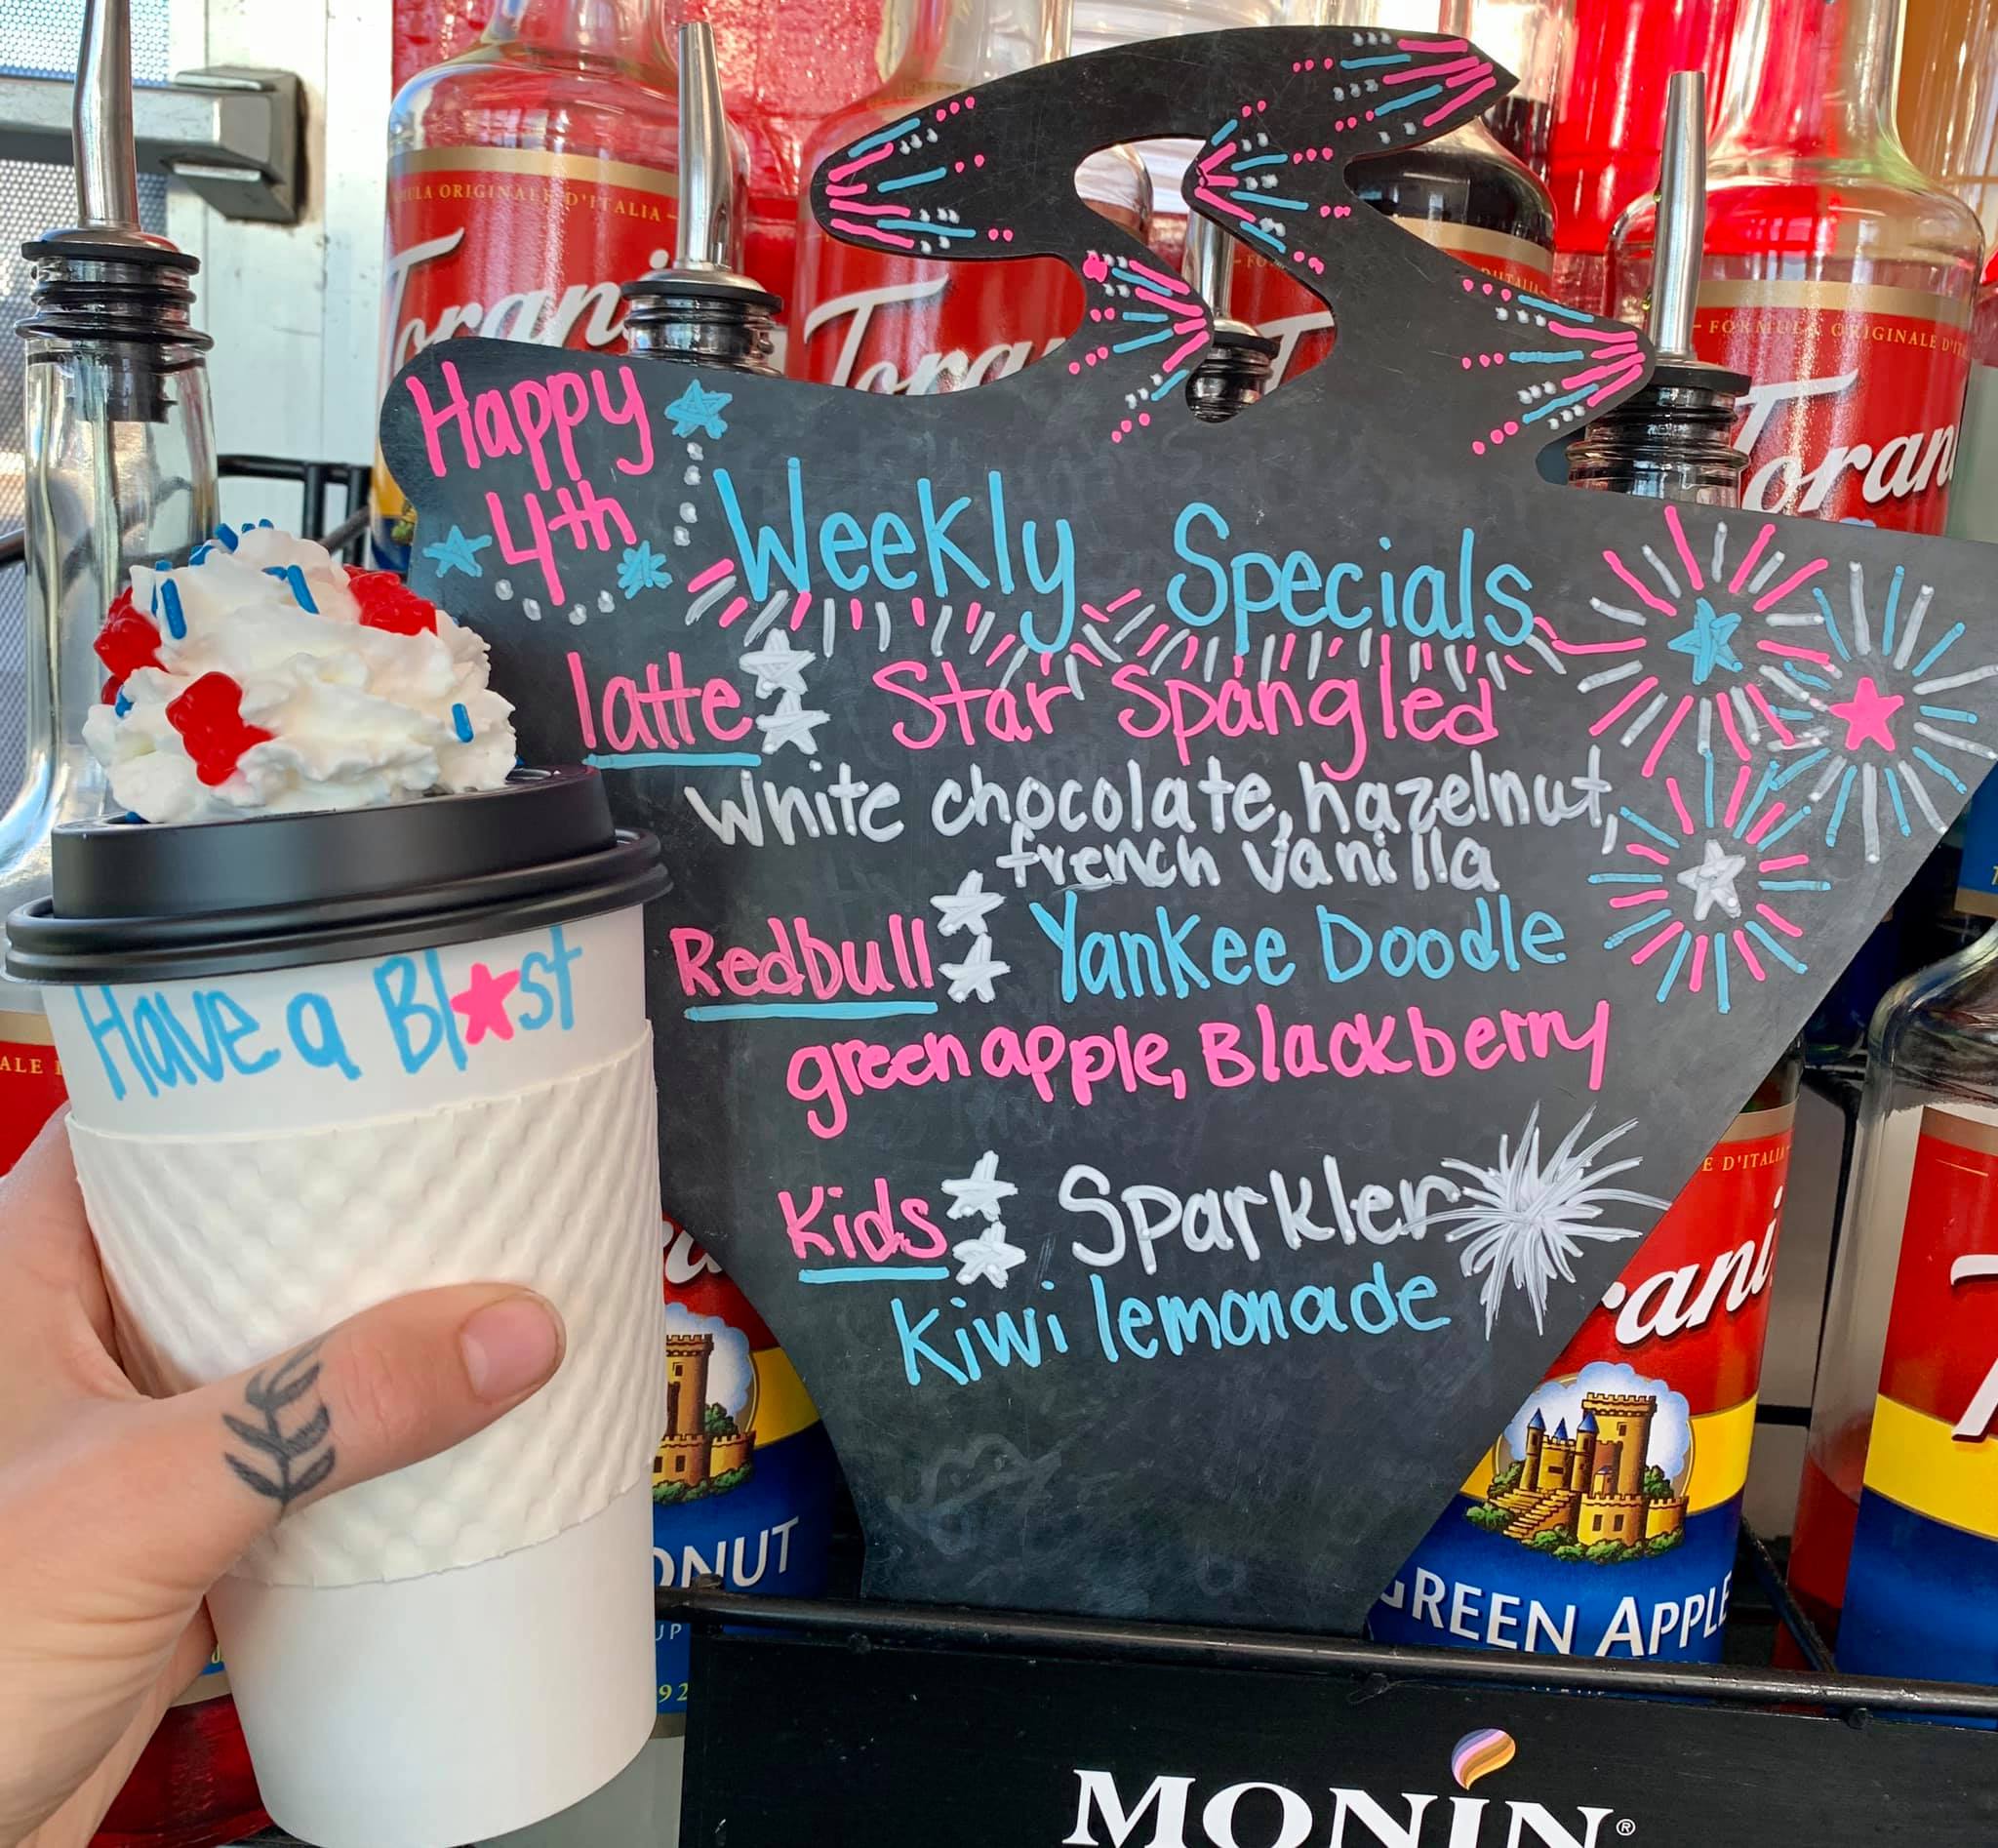 FORMULA ORIGINALE D'ITALIA
Torani
Torani
Torani
Happy
4th
Weekly Specials
latte: Star Spangled
White chocolate, hazelnut,
french vanilla
Redbull: Yankee Doodle
green apple, Blackberry
Kids: Sparkler
Kiwi lemonade
Have a Blast
GREEN APPLE
MONIN®